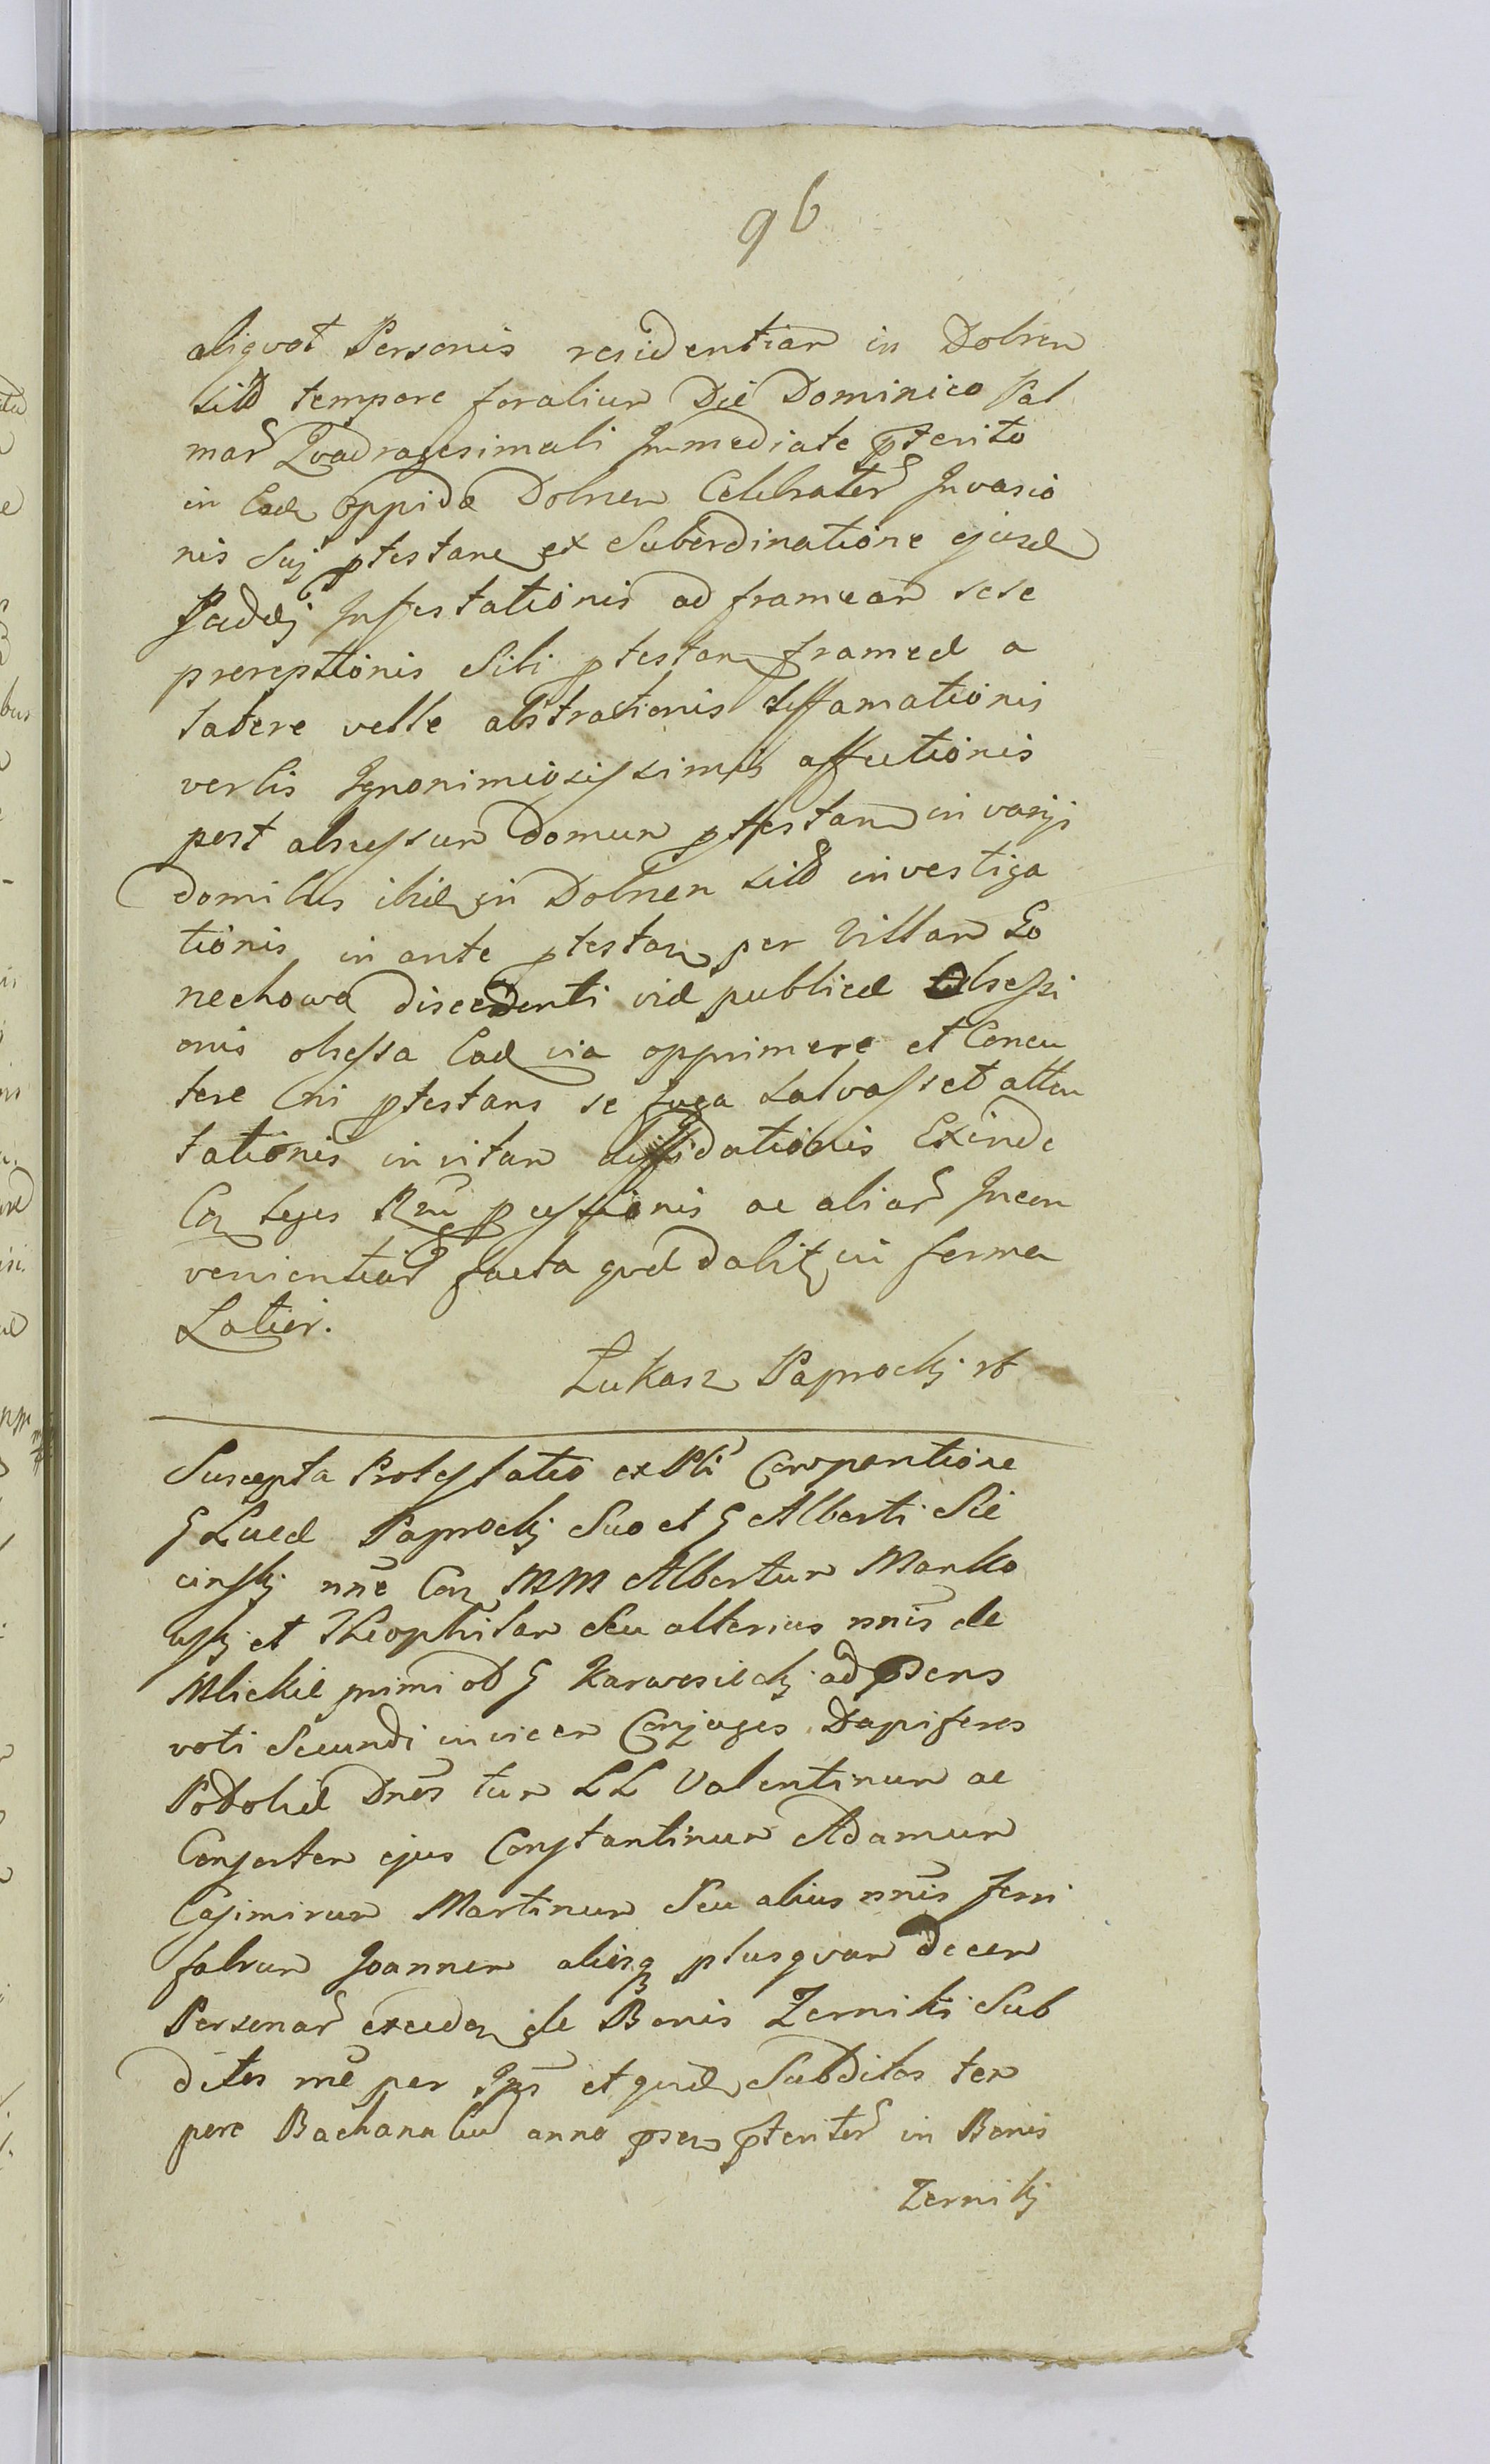 96
aliqvot Personis residentiam in Dobren
sitā tempore foralium Die Dominico Pal
mar Qvadragesimali Immediate pterito
in Eode Oppido Dobrzen Celebrator Invasio
nis Suj ptestane ex Subordinatione ejusd
Judej Infestationis ad frameam sese
prereptionis Sibi ptestan frameæ a
latere velle abstractionis diffamationis
verbis Ignonimiosissimis affectionis
post abscessum domum ptestan in varijs
domibus ibide in Dobrzen sitis investiga
tionis in ante ptestan per Villam Go
nechowo discedenti viæ publicæ Obsessi
onis obsessa Eade via opprimere et Concu
tere ni ptestans se fuga salvasset atten
tationis in vitam diffidationis Exinde
Con Leges Rni pcessionis ac aliar Incon
venientiar facta qvæ dabit in forma
Latiori.
Łukasz Paprockj
Suscepta Protestatio ex Pli Comparitione
G Lucæ Paprockj Suo et G Alberti Sie
cinskj nne Con MM Albertum Marko
wskj et Theophilam Seu alterius nnis de
Mlickie primi od G Karwosieckj ad psens
voti Secundi invicem Conjuges Dapiferos
Podoliæ Dnos tum LL Valentinum ac
Consortem ejus Constantinum Adamum
Casimirum Martinum Seu alius nnis ferri
fabrum Joannem aliosq plusqvam decem
Personar exceden de Bonis Zerniki Sub
ditos me per Ips et qvide Subditos tem
pore Bachanaliū anno psen pteritor in Bonis
Zernikj